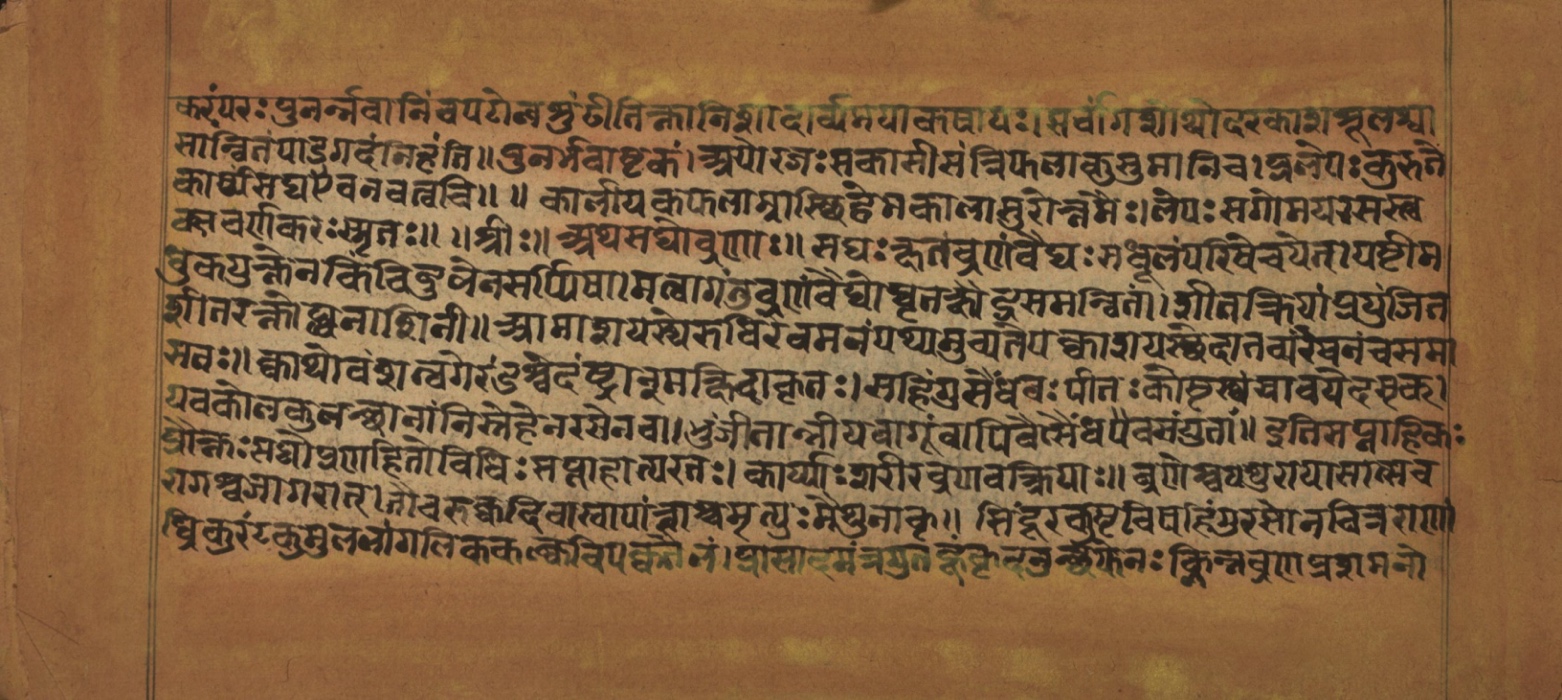 करंपरः पुनर्न्नवानिंवपटोलशुंठीतिक्तानिशादार्व्यमयाकषायः। सर्वांगशोथोदरकाशशूलश्वा
सान्वितंपांडुगदंनिहंति॥ पुनर्भवाष्टकं। अयोरजः सकासीसंत्रिफलाकुसुमानिच। प्रलेपः कुरुते
कार्ष्ण्यंसद्यएवनवत्वचि॥ ॥ कालीयकफलाम्रास्थिहेमकालासुरोत्तमैः। लेपः सगोमयरसस्त्व
क्सवर्णकरः स्मृतः॥ ॥ श्रीः॥ अथसद्योव्रणाः॥ सद्यः क्षतंव्रणंवैद्यः सशूलंपरिषेचयेत्। यष्टीम
धुकयुक्तेनकिंचिदुष्णेनसर्प्पिषा। मत्वागंतुव्रणंवैद्योघृतक्षौद्रसमन्वितां। शीतक्रियांप्रयुंजित
शीतरक्तोष्मनाशिनी॥ आमाशयस्थेरुधिरेवमनंपथ्यमुच्यतेपक्वाशयस्थेदातव्यंरेचनंचसमा
सतः॥ क्वाथोवंशत्वगेरंडश्वदंष्ट्राश्मभिदाकृतः। सहिंगुसैंधवः पीतः कोष्टस्थंस्रावयेदसृक्।
यवकोलकुलत्थानांनिस्नेहेनरसेनवा। भुंजीतान्नंयवागूंवापिवेत्सैंधवसंयुतां॥ इतिसप्ताहिकः
प्रोक्तः सद्योव्रणहितोविधिः सप्ताहात्परतः। कार्य्याः शरीरव्रणवत्क्रियाः॥ व्रणेश्वयथुरायासात्सच
रागश्चजागरात्। तौचरुक्चदिवास्वापात्ताश्चमृत्युः मैथुनाकृ॥ सिंदूरकुष्टविषहिंगुरसोनचित्रवाणां
घ्रिकुरंटकुमुललांगलिककल्कविपक्वतैलं। प्रासादमंत्रयुतहूंकृदनुन्नफेनः क्लिन्नव्रणप्रशमनो